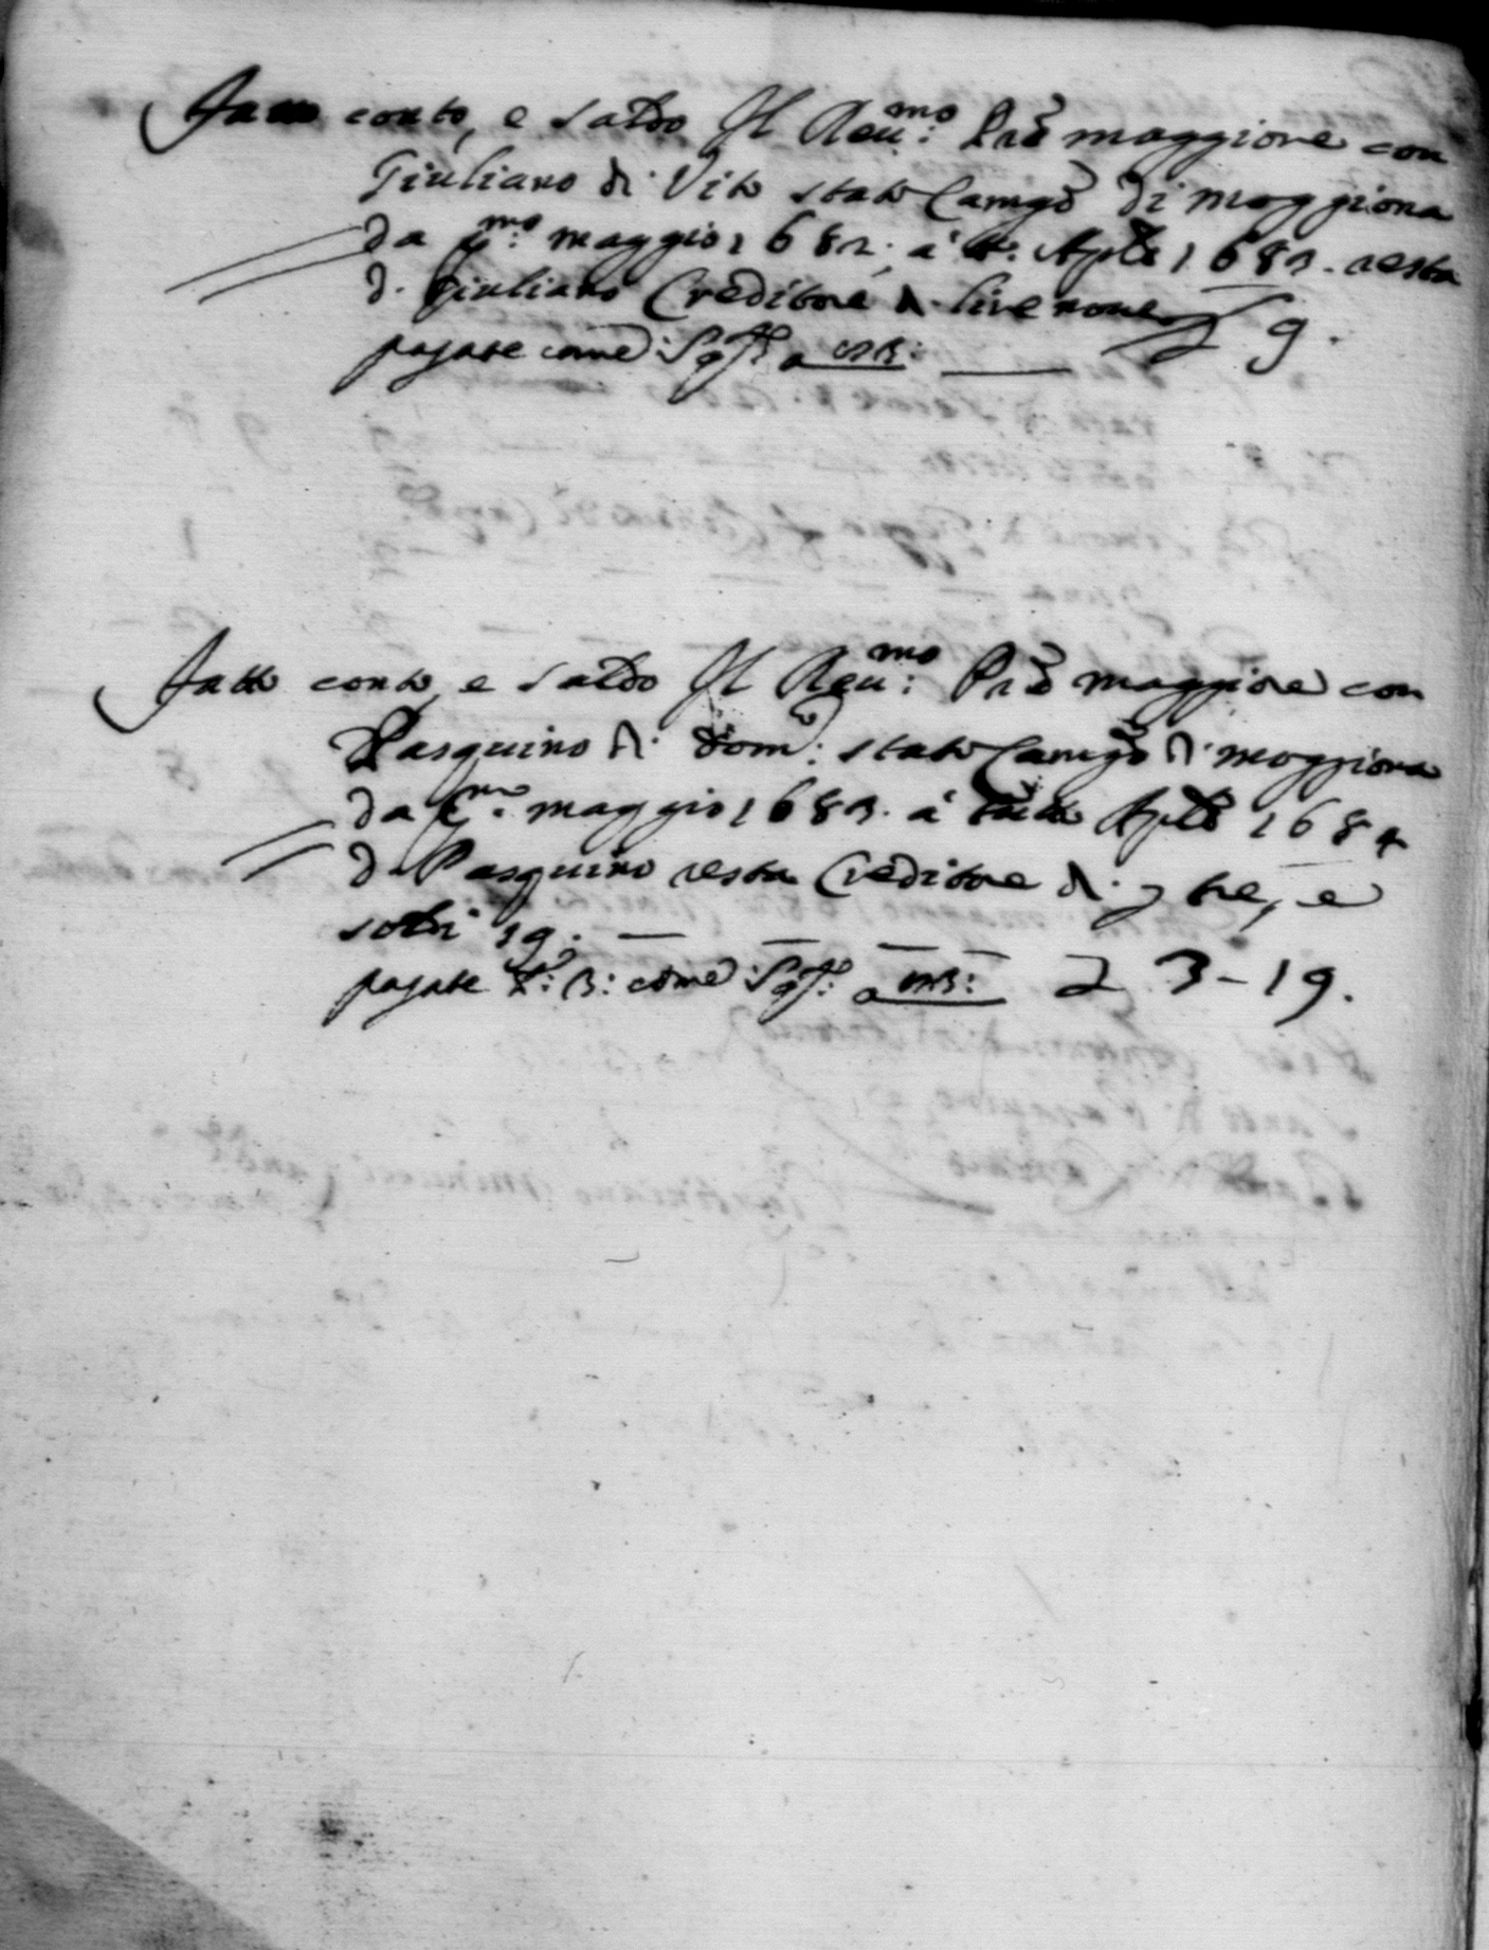 Fatto conto, e saldo Il Reu:mo Pre maggiore con
Giuliano di Vito stato Camgo di moggiona
da p:mo maggio 1682. a' t:o Aple 1683. resta
d. Giuliano Creditore di lire noue £ 9.
pagate come
Fatto conto, e saldo Il Reu:mo Pre maggiore con
Pasquino di Dom:co stato Camgo di moggiona
da p:mo maggio 1683. a' tutto Aple 1684
d. Pasquino resta Creditore di £ tre, e
soldi 19. — — — —
pagate come £ 3-19.